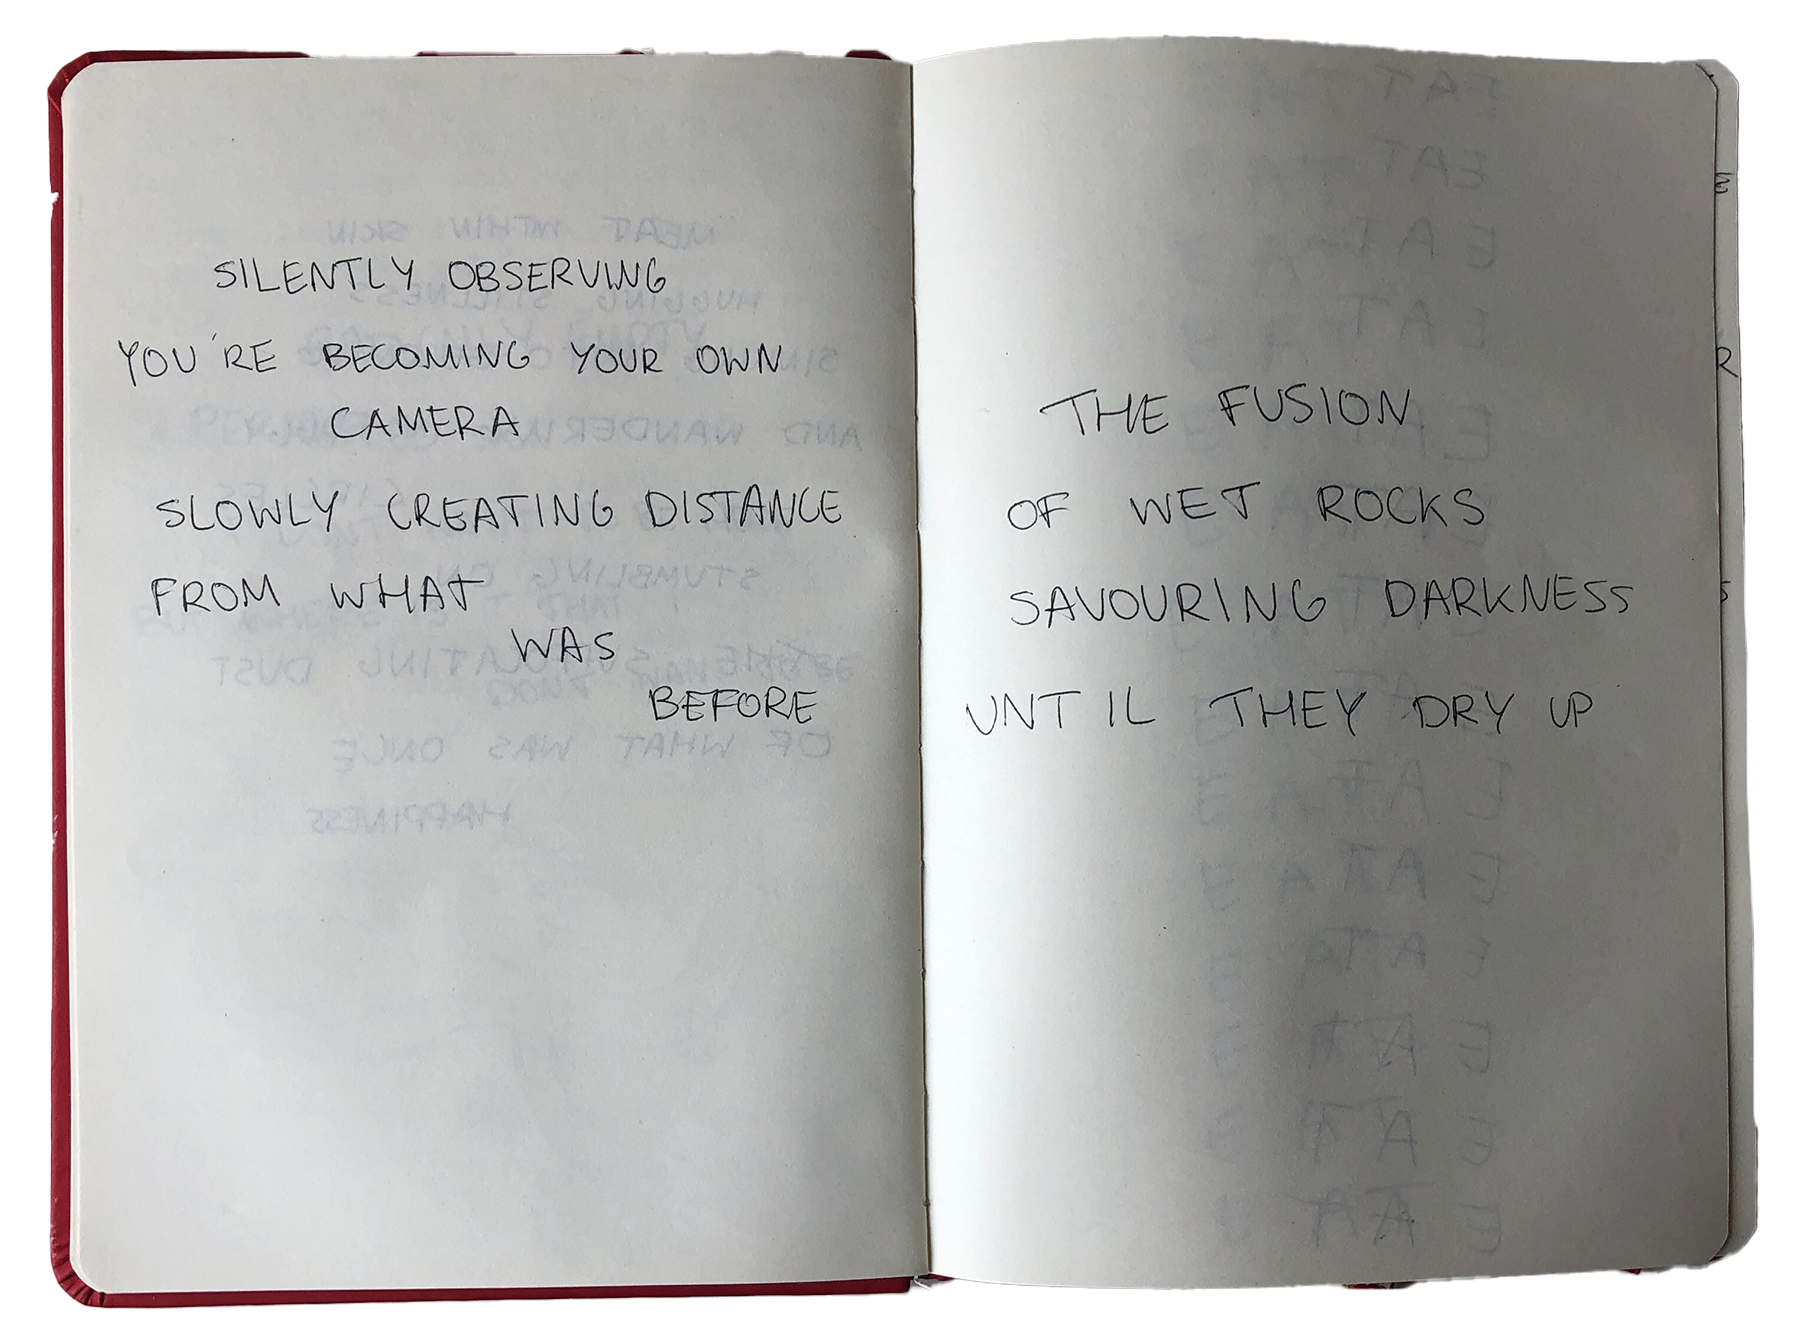 SILENTLY OBSERVING
YOU'RE BECOMING YOUR OWN
CAMERA
SLOWLY CREATING DISTANCE
FROM WHAT
WAS
BEFORE
THE FUSION
OF WET ROCKS
SAVOURING DARKNESS
UNTIL THEY DRY UP